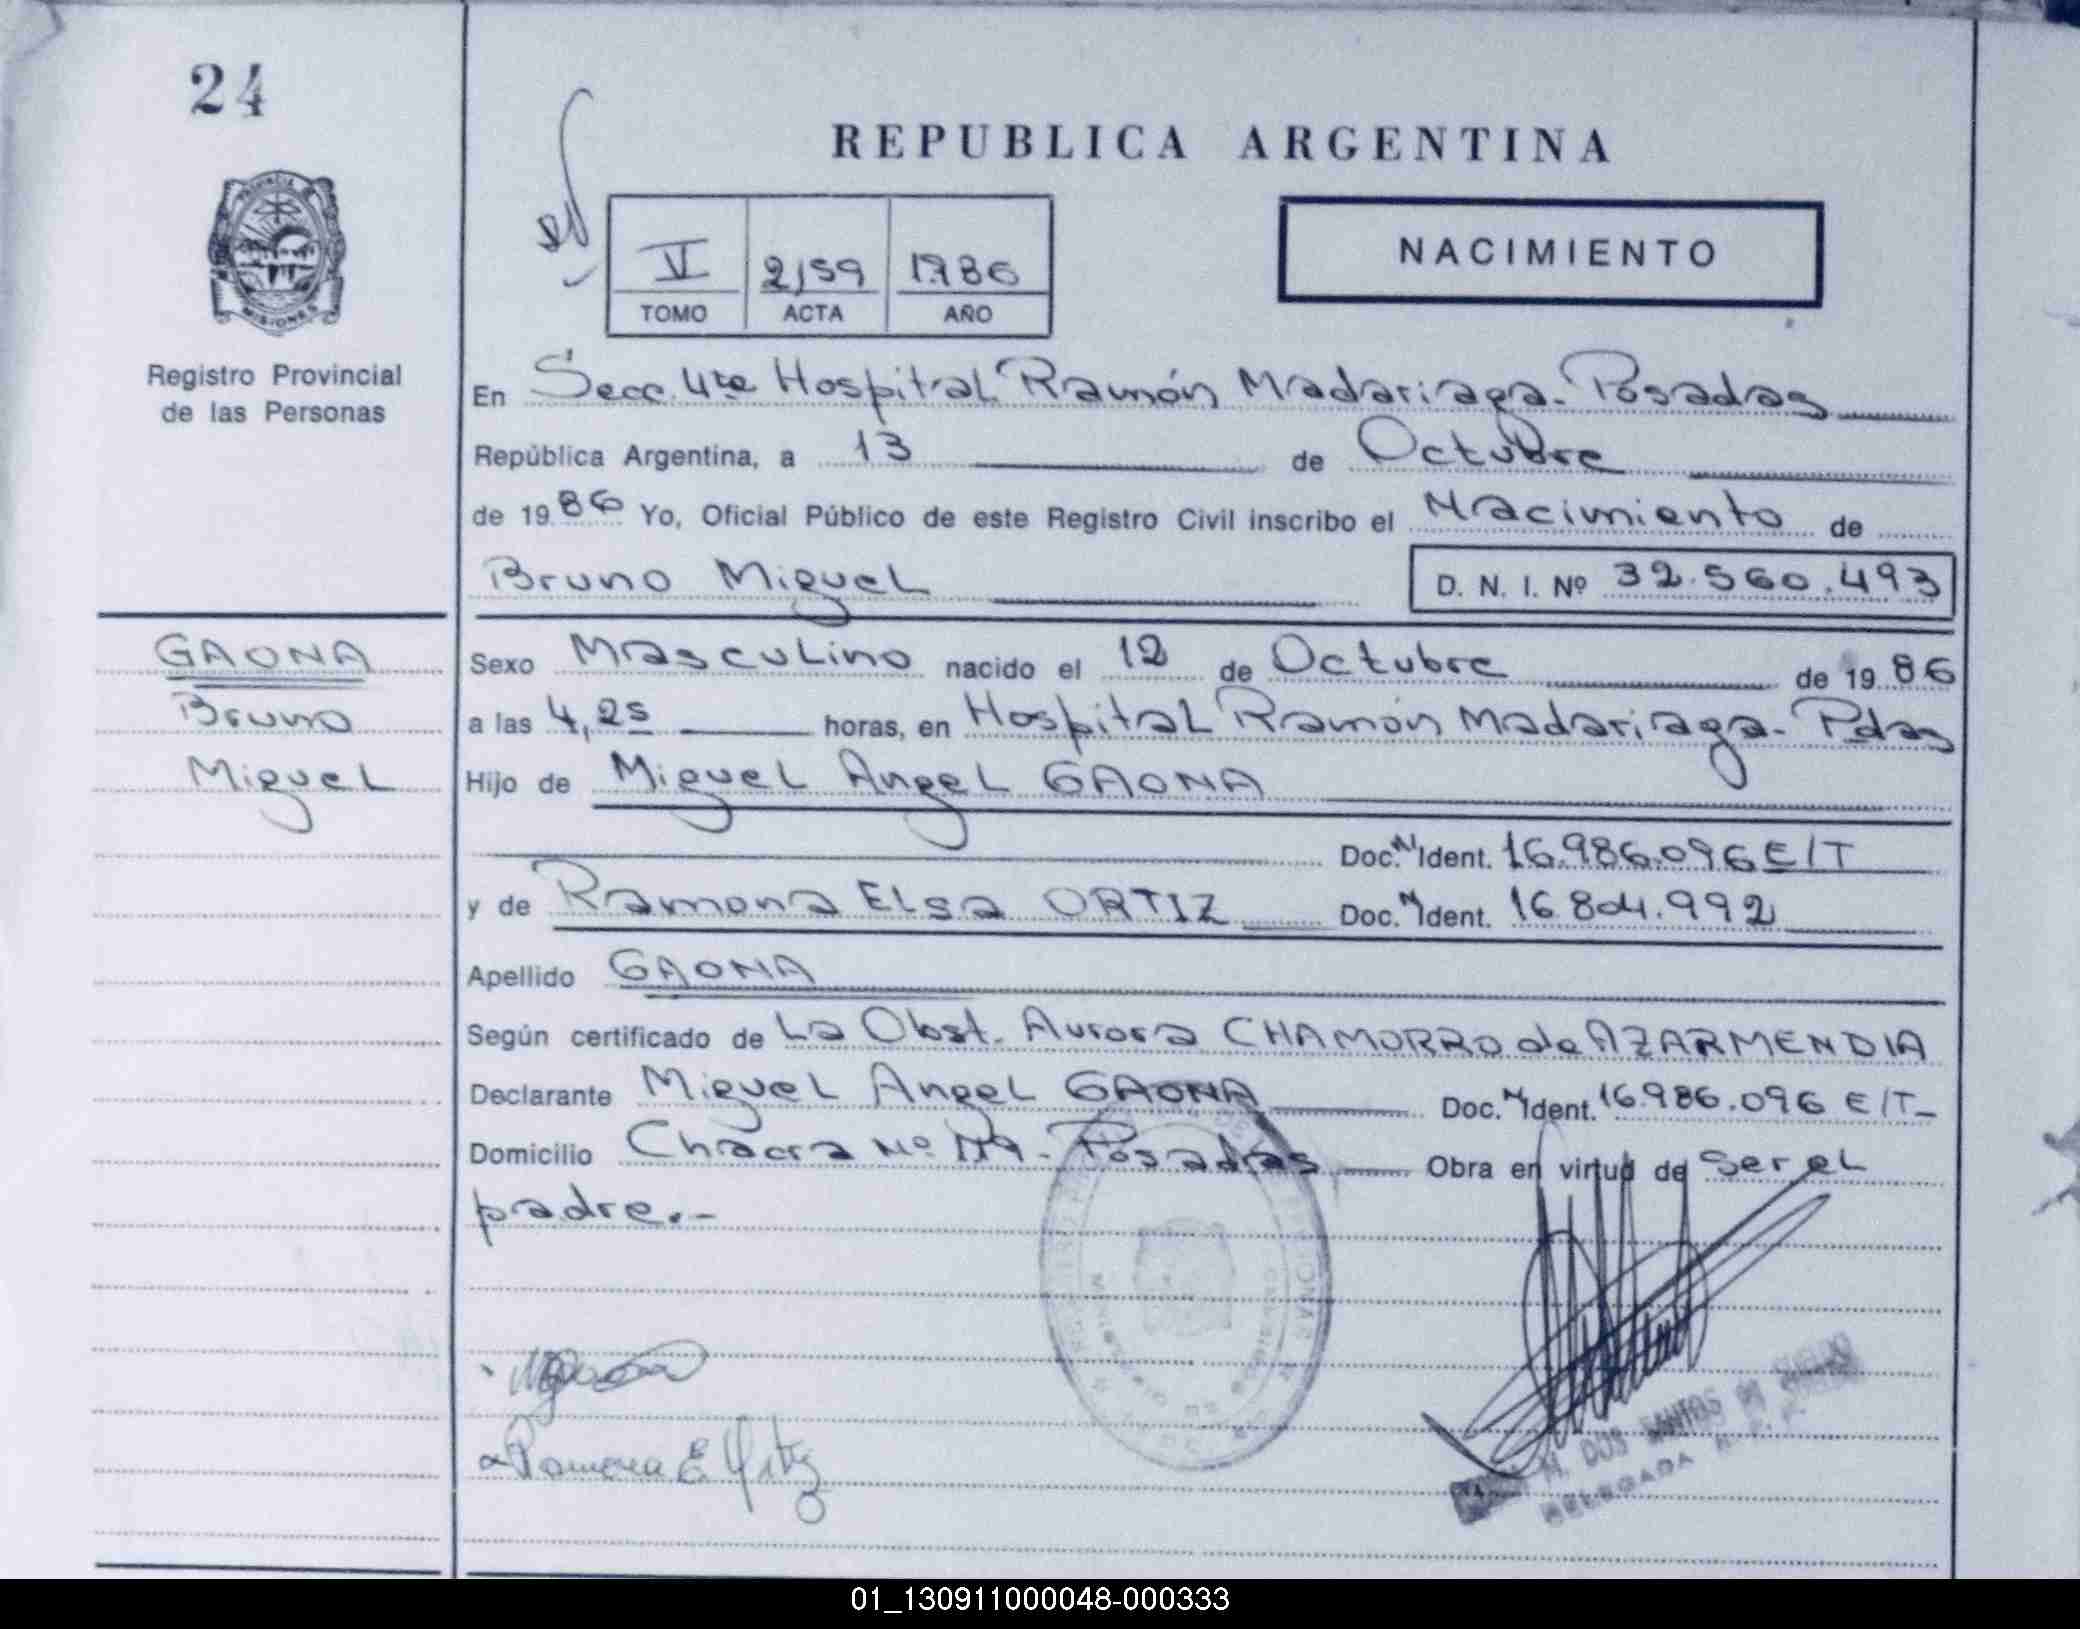 24
REPUBLICA ARGENTINA
NACIMIENTO
V 2159 1986
TOMO ACTA AÑO
PROVINCIA DE
MISIONES
Registro Provincial
de las Personas
En Secc. 4ta Hospital Ramón Madariaga - Posadas
República Argentina, a 13 de Octubre
de 1986 Yo, Oficial Público de este Registro Civil inscribo el Nacimiento de
Bruno Miguel D. N. I. Nº 32.560.493
GAONA
Bruno
Miguel
Sexo Masculino nacido el 12 de Octubre de 1986
a las 4,25 horas, en Hospital Ramón Madariaga - Pdas
Hijo de Miguel Angel GAONA
Doc. N Ident. 16.986.096 E/T
y de Ramona Elsa ORTIZ Doc. N Ident. 16.804.992
Apellido GAONA
Según certificado de La Obst. Aurora CHAMORRO de AZARMENDIA
Declarante Miguel Angel GAONA Doc. N Ident. 16.986.096 E/T-
Domicilio Chacra Nº - Posadas Obra en virtud de Ser el
padre.-
Ramona E. Ortiz
M. DOS SANTOS
DELEGADA
01_130911000048-000333